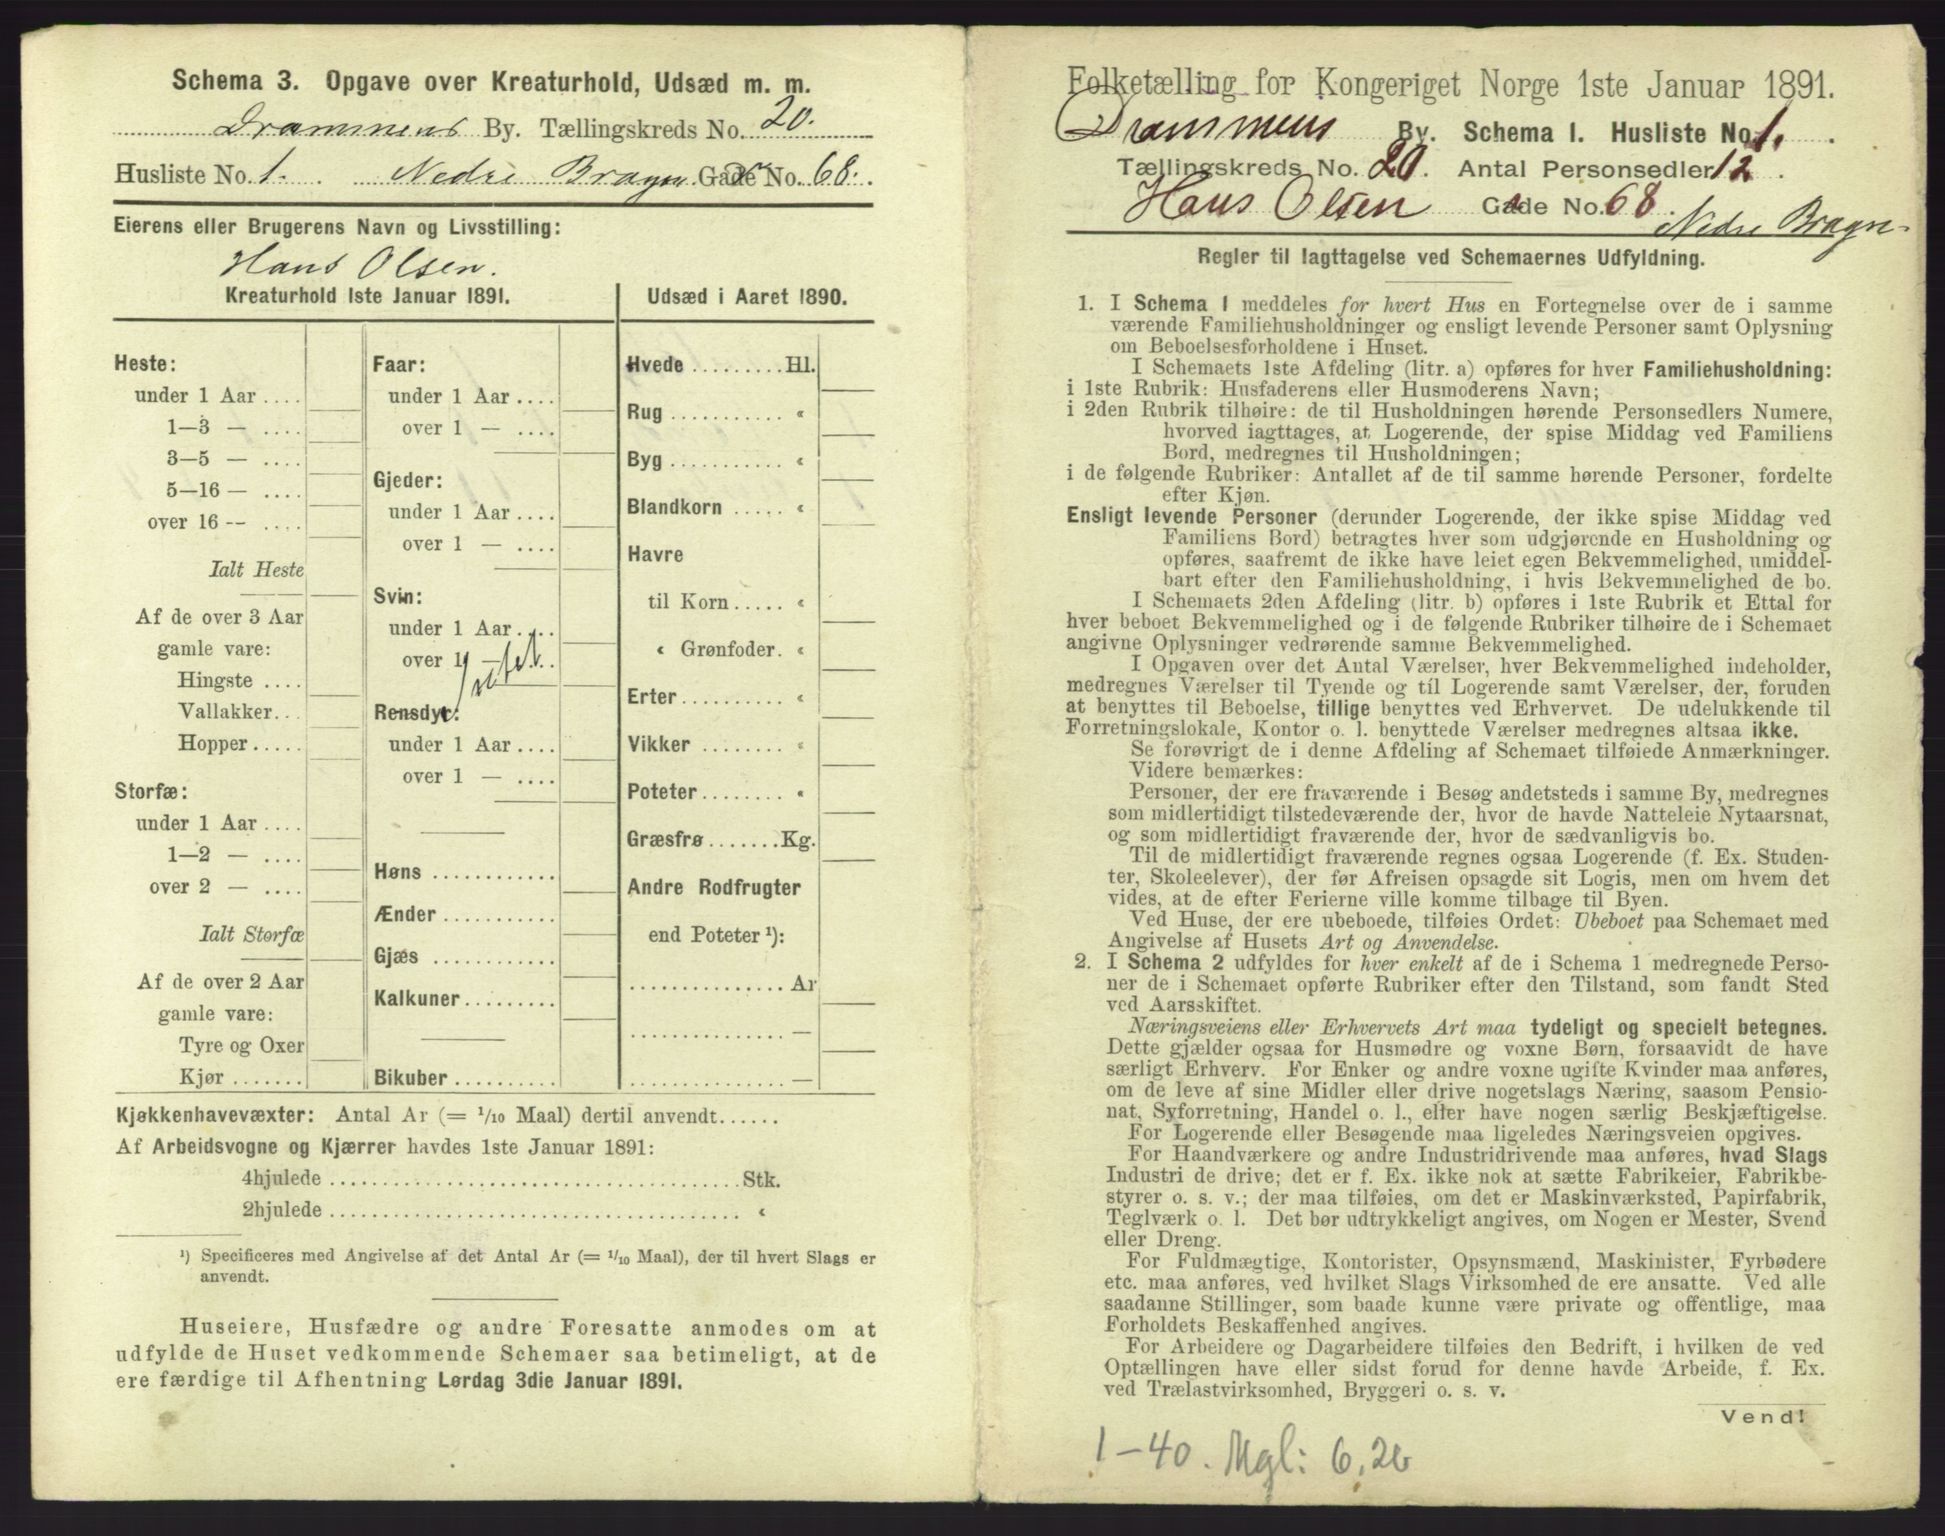 Schema 3. Opgave over Kreaturhold, Udsæd m. m.
Drammens By. Tællingskreds No. 20.
Husliste No. 1. Nedre Bragn. Gade No. 68.
Eierens eller Brugerens Navn og Livsstilling:
Hans Olsen.
Kreaturhold 1ste Januar 1891.
Heste:
under 1 Aar ....
1—3 — ....
3—5 — ....
5—16 — ....
over 16 — ....
Ialt Heste
Af de over 3 Aar
gamle vare:
Hingste ....
Vallakker...
Hopper.....
Storfæ:
under 1 Aar ....
1—2 — ....
over 2 — ....
Ialt Storfæ
Af de over 2 Aar
gamle vare:
Tyre og Oxer
Kjør .......
Faar:
under 1 Aar ....
over 1 — ....
Gjeder:
under 1 Aar ....
over 1 — ....
Svin:
under 1 Aar....
over 1 — ....
Intet
Rensdyr:
under 1 Aar ....
over 1 — ....
Høns ............
Ænder ...........
Gjæs ............
Kalkuner.........
Bikuber ..........
Udsæd i Aaret 1890.
Hvede .........Hl.
Rug ........... «
Byg ........... «
Blandkorn ..... «
Havre
til Korn..... «
« Grønfoder. «
Erter.......... «
Vikker ........ «
Poteter........ «
Græsfrø.......Kg.
Andre Rodfrugter
end Poteter ¹):
...............Ar
............... —
............... —
Kjøkkenhavevæxter: Antal Ar (= 1/10 Maal) dertil anvendt......
Af Arbeidsvogne og Kjærrer havdes 1ste Januar 1891:
4hjulede .......................................Stk.
2hjulede ....................................... «
¹) Specificeres med Angivelse af det Antal Ar (= 1/10 Maal), der til hvert Slags er
anvendt.
Huseiere, Husfædre og andre Foresatte anmodes om at
udfylde de Huset vedkommende Schemaer saa betimeligt, at de
ere færdige til Afhentning Lørdag 3die Januar 1891.
Folketælling for Kongeriget Norge 1ste Januar 1891.
Drammens By. Schema I. Husliste No. 1.
Tællingskreds No. 20. Antal Personsedler 12.
Hans Olsen Gade No. 68. Nedre Bragn-
Regler til Iagttagelse ved Schemaernes Udfyldning.
1. I Schema 1 meddeles for hvert Hus en Fortegnelse over de i samme
værende Familiehusholdninger og ensligt levende Personer samt Oplysning
om Beboelsesforholdene i Huset.
I Schemaets 1ste Afdeling (litr. a) opføres for hver Familiehusholdning:
i 1ste Rubrik: Husfaderens eller Husmoderens Navn;
i 2den Rubrik tilhøire: de til Husholdningen hørende Personsedlers Numere,
hvorved iagttages, at Logerende, der spise Middag ved Familiens
Bord, medregnes til Husholdningen;
i de følgende Rubriker: Antallet af de til samme hørende Personer, fordelte
efter Kjøn.
Ensligt levende Personer (derunder Logerende, der ikke spise Middag ved
Familiens Bord) betragtes hver som udgjørende en Husholdning og
opføres, saafremt de ikke have leiet egen Bekvemmelighed, umiddel-
bart efter den Familiehusholdning, i hvis Bekvemmelighed de bo.
I Schemaets 2den Afdeling (litr. b) opføres i 1ste Rubrik et Ettal for
hver beboet Bekvemmelighed og i de følgende Rubriker tilhøire de i Schemaet
angivne Oplysninger vedrørende samme Bekvemmelighed.
I Opgaven over det Antal Værelser, hver Bekvemmelighed indeholder,
medregnes Værelser til Tyende og til Logerende samt Værelser, der, foruden
at benyttes til Beboelse, tillige benyttes ved Erhvervet. De udelukkende til
Forretningslokale, Kontor o. l. benyttede Værelser medregnes altsaa ikke.
Se forøvrigt de i denne Afdeling af Schemaet tilføiede Anmærkninger.
Videre bemærkes:
Personer, der ere fraværende i Besøg andetsteds i samme By, medregnes
som midlertidigt tilstedeværende der, hvor de havde Natteleie Nytaarsnat,
og som midlertidigt fraværende der, hvor de sædvanligvis bo.
Til de midlertidigt fraværende regnes ogsaa Logerende (f. Ex. Studen-
ter, Skoleelever), der før Afreisen opsagde sit Logis, men om hvem det
vides, at de efter Ferierne ville komme tilbage til Byen.
Ved Huse, der ere ubeboede, tilføies Ordet: Ubeboet paa Schemaet med
Angivelse af Husets Art og Anvendelse.
2. I Schema 2 udfyldes for hver enkelt af de i Schema 1 medregnede Perso-
ner de i Schemaet opførte Rubriker efter den Tilstand, som fandt Sted
ved Aarsskiftet.
Næringsveiens eller Erhvervets Art maa tydeligt og specielt betegnes.
Dette gjælder ogsaa for Husmødre og voxne Børn, forsaavidt de have
særligt Erhverv. For Enker og andre voxne ugifte Kvinder maa anføres,
om de leve af sine Midler eller drive nogetslags Næring, saasom Pensio-
nat, Syforretning, Handel o. l., eller have nogen særlig Beskjæftigelse.
For Logerende eller Besøgende maa ligeledes Næringsveien opgives.
For Haandværkere og andre Industridrivende maa anføres, hvad Slags
Industri de drive; det er f. Ex. ikke nok at sætte Fabrikeier, Fabrikbe-
styrer o. s. v.; der maa tilføies, om det er Maskinværksted, Papirfabrik,
Teglværk o. l. Det bør udtrykkeligt angives, om Nogen er Mester, Svend
eller Dreng.
For Fuldmægtige, Kontorister, Opsynsmænd, Maskinister, Fyrbødere
etc. maa anføres, ved hvilket Slags Virksomhed de ere ansatte. Ved alle
saadanne Stillinger, som baade kunne være private og offentlige, maa
Forholdets Beskaffenhed angives.
For Arbeidere og Dagarbeidere tilføies den Bedrift, i hvilken de ved
Optællingen have eller sidst forud for denne havde Arbeide, f. Ex.
ved Trælastvirksomhed, Bryggeri o. s. v.
Vend!
1-40. Mgl: 6, 26